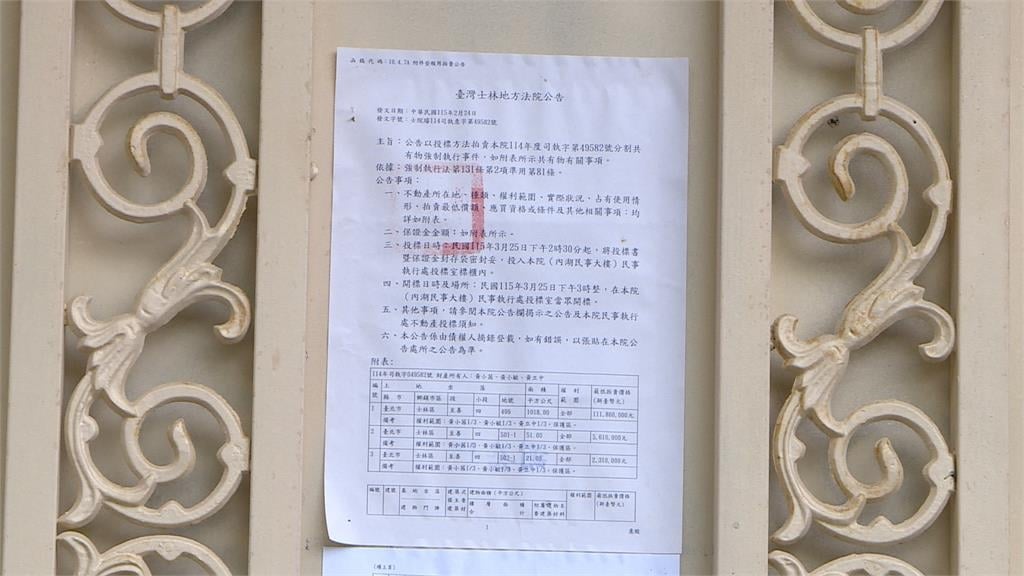 函稿代碼：10.4.7A 附件登報用拍賣公告
臺灣士林地方法院公告
發文日期：中華民國115年2月24日
發文字號：士院 114司執 字第49582號
主旨：公告以投標方法拍賣本院114年度司執字第49582號分割共
有物強制執行事件，如附表所示共有物有關事項。
依據：強制執行法第131條第2項準用第81條。
公告事項：
一、不動產所在地、種類、權利範圍、實際狀況、占有使用情
形、拍賣最低價額、應買資格或條件及其他相關事項：均
詳如附表。
二、保證金金額：如附表所示。
三、投標日時：民國115年3月25日下午2時30分起，將投標書
暨保證金封存袋密封妥，投入本院（內湖民事大樓）民事
執行處投標室標櫃內。
四、開標日時及場所：民國115年3月25日下午3時整，在本院
（內湖民事大樓）民事執行處投標室當眾開標。
五、其他事項，請參閱本院公告欄揭示之公告及本院民事執行
處不動產投標須知。
六、本公告係由債權人摘錄登載，如有錯誤，以張貼在本院公
告處所之公告為準。
附表：
114年司執字049582號 財產所有人：黃小菡、黃小敏、黃立中
編號 土地坐落 面積 權利範圍 最低拍賣價格
縣市 鄉鎮市區 段 小段 地號 平方公尺 （新臺幣元）
1 臺北市 士林區 至善 四 495 1018.00 全部 111,860,000元
備考 權利範圍：黃小菡1/3、黃小敏1/3、黃立中1/3。保護區。
2 臺北市 士林區 至善 四 501-1 51.00 全部 5,610,000元
備考 權利範圍：黃小菡1/3、黃小敏1/3、黃立中1/3。保護區。
3 臺北市 士林區 至善 四 502-1 21.00 全部 2,310,000元
備考 權利範圍：黃小菡1/3、黃小敏1/3、黃立中1/3。保護區。
編號 建號 基地坐落 建築式 建物面積（平方公尺） 權利範圍 最低拍賣價格
建物門牌 樣主要 樓層面積 附屬建物主 （新臺幣元）
建築材 合計 要建築材料
1
（續上頁）